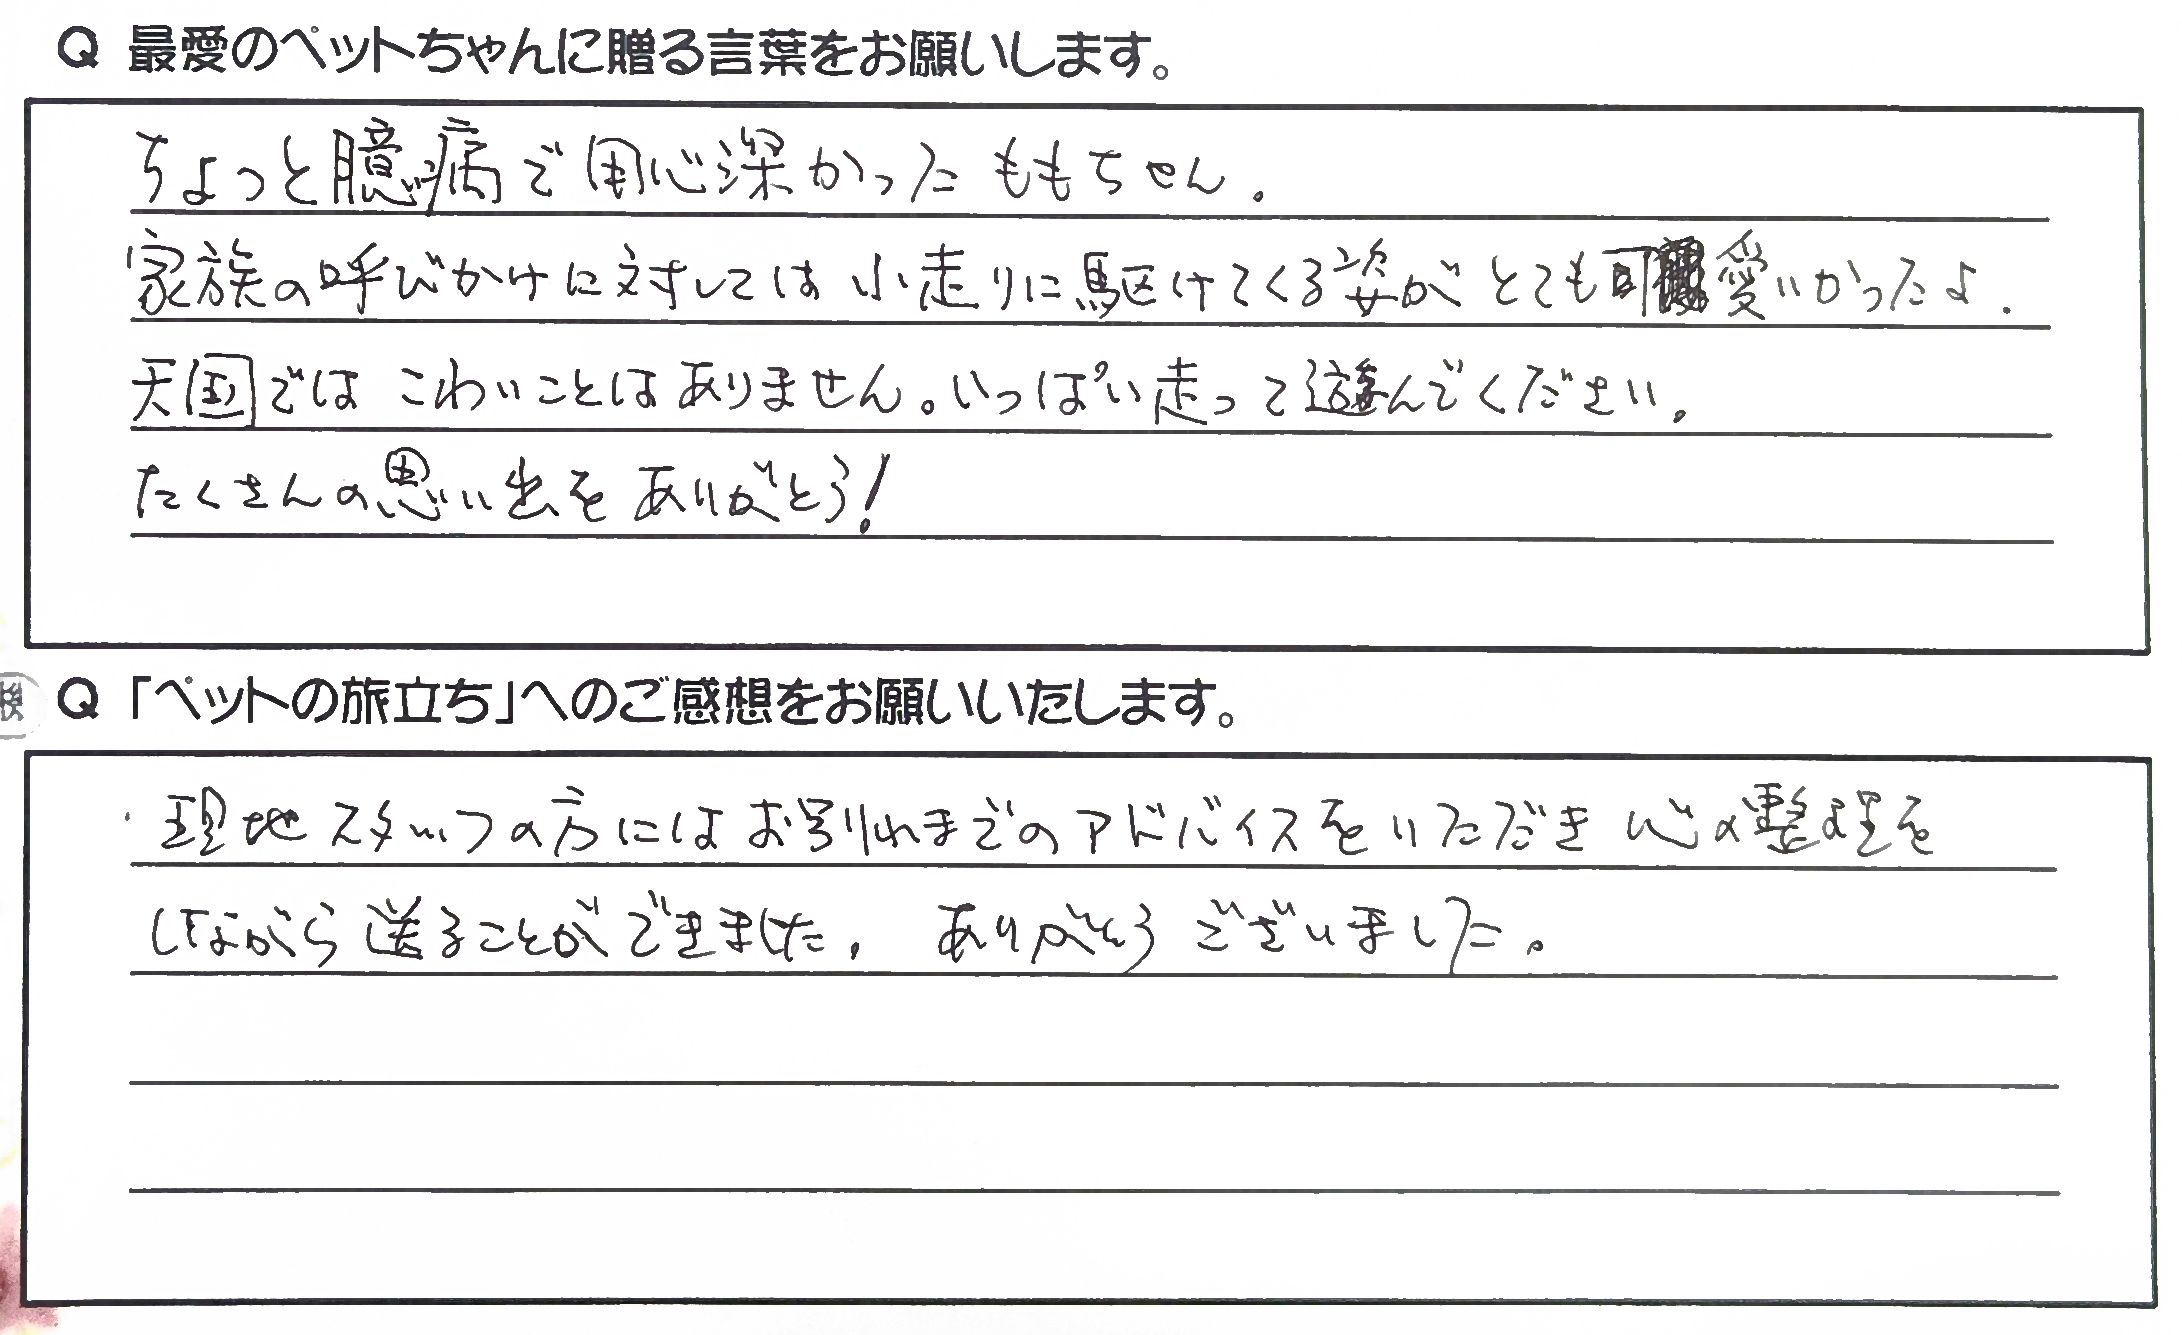 Q 最愛のペットちゃんに贈る言葉をお願いします。
ちょっと臆病で用心深かったももちゃん.
家族の呼びかけに対しては小走りに駆けてくる姿がとても可愛いかったよ.
天国ではこわいことはありません。いっぱい走って遊んでください.
たくさんの思い出をありがとう!
Q 「ペットの旅立ち」へのご感想をお願いいたします。
現地スタッフの方にはお別れまでのアドバイスをいただき心の整理を
しながら送ることができました. ありがとうございました。